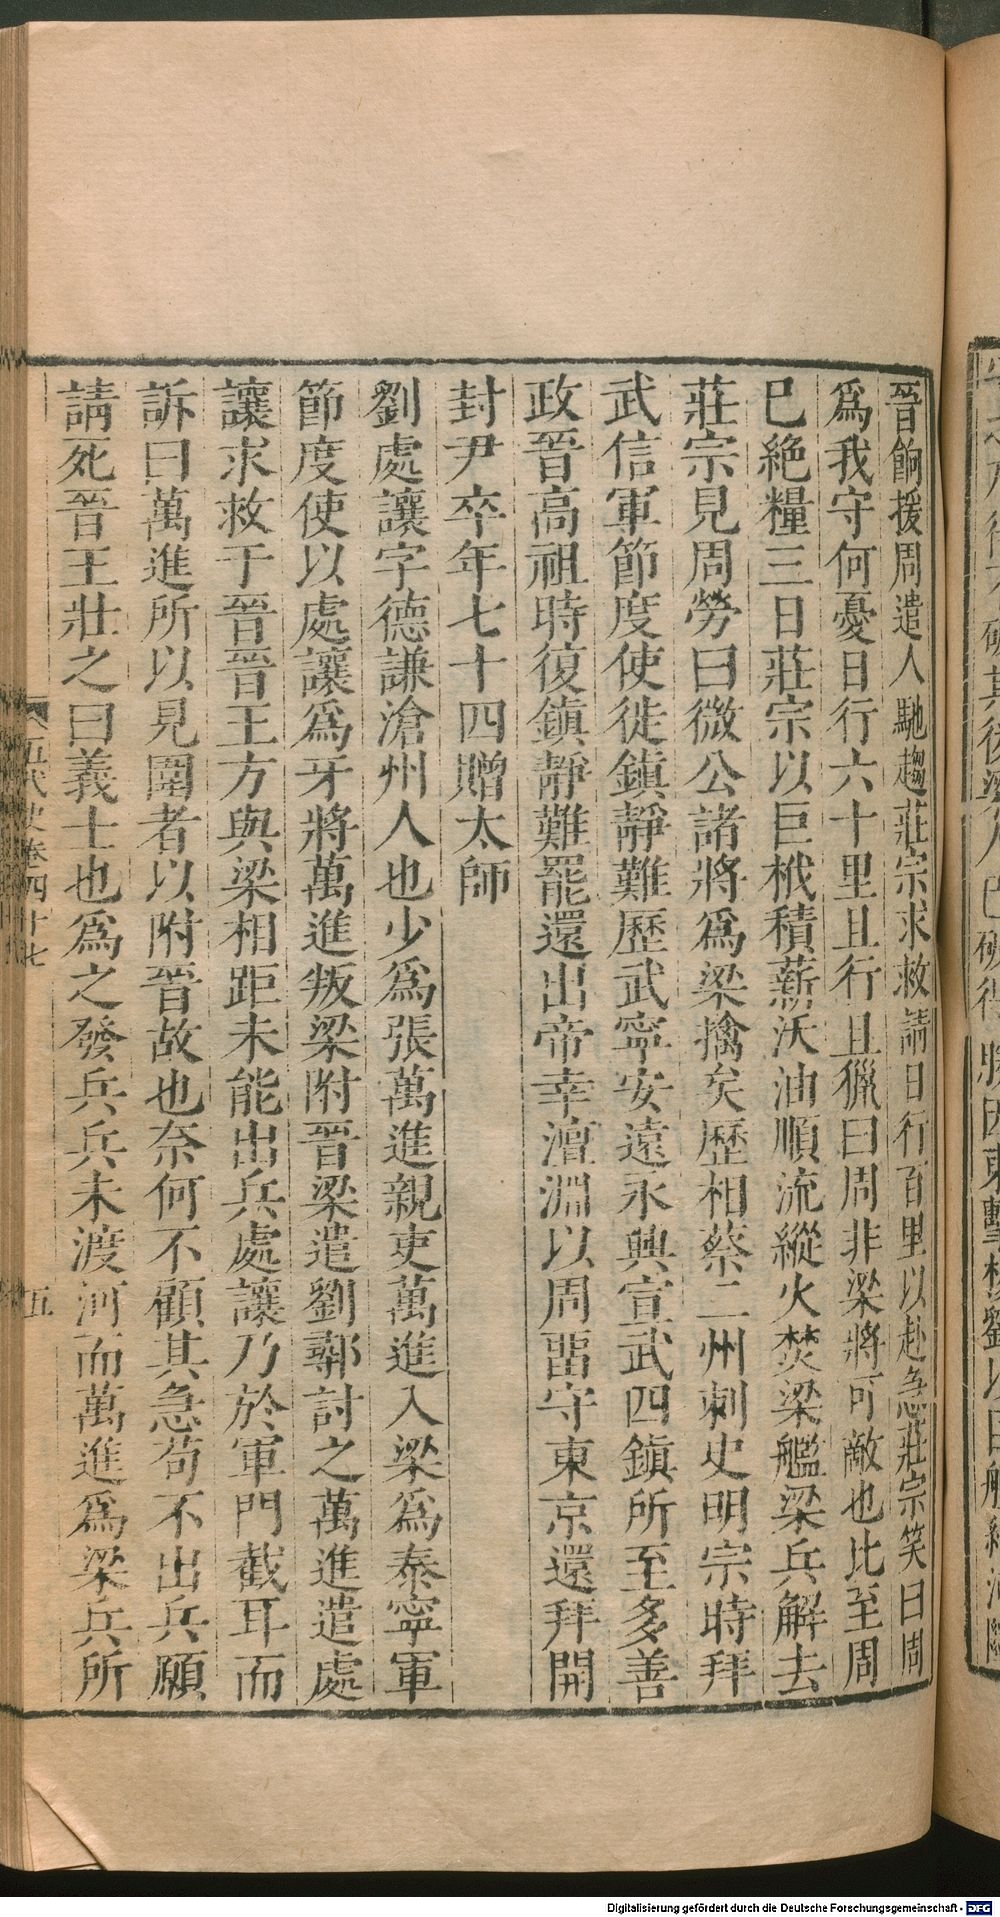 晉餉援周遣人馳趨莊宗求救請日行百里以赴急莊宗笑曰周
爲我守何憂日行六十里且行且獵曰周非梁將可敵也比至周
巳絶糧三日莊宗以巨栰積薪沃油順流縱火焚梁艦梁兵解去
莊宗見周勞曰微公諸將爲梁擒矣歷相蔡二州刺史明宗時拜
武信軍節度使徙鎮靜難歷武寧安遠永興宣武四鎮所至多善
政晉高祖時復鎮靜難罷還出帝幸澶淵以周畱守東京還拜開
封尹卒年七十四贈太師
劉處讓字德謙滄州人也少爲張萬進親吏萬進入梁爲泰寧軍
節度使以處讓爲牙將萬進叛梁附晉梁遣劉鄩討之萬進遣處
讓求救于晉晉王方與梁相距未能出兵處讓乃於軍門截耳而
訴曰萬進所以見圍者以附晉故也奈何不顧其急苟不出兵願
請死晉王壯之曰義士也爲之發兵兵未渡河而萬進爲梁兵所
五代史卷四十七
五
Digitalisierung gefördert durch die Deutsche Forschungsgemeinschaft - DFG